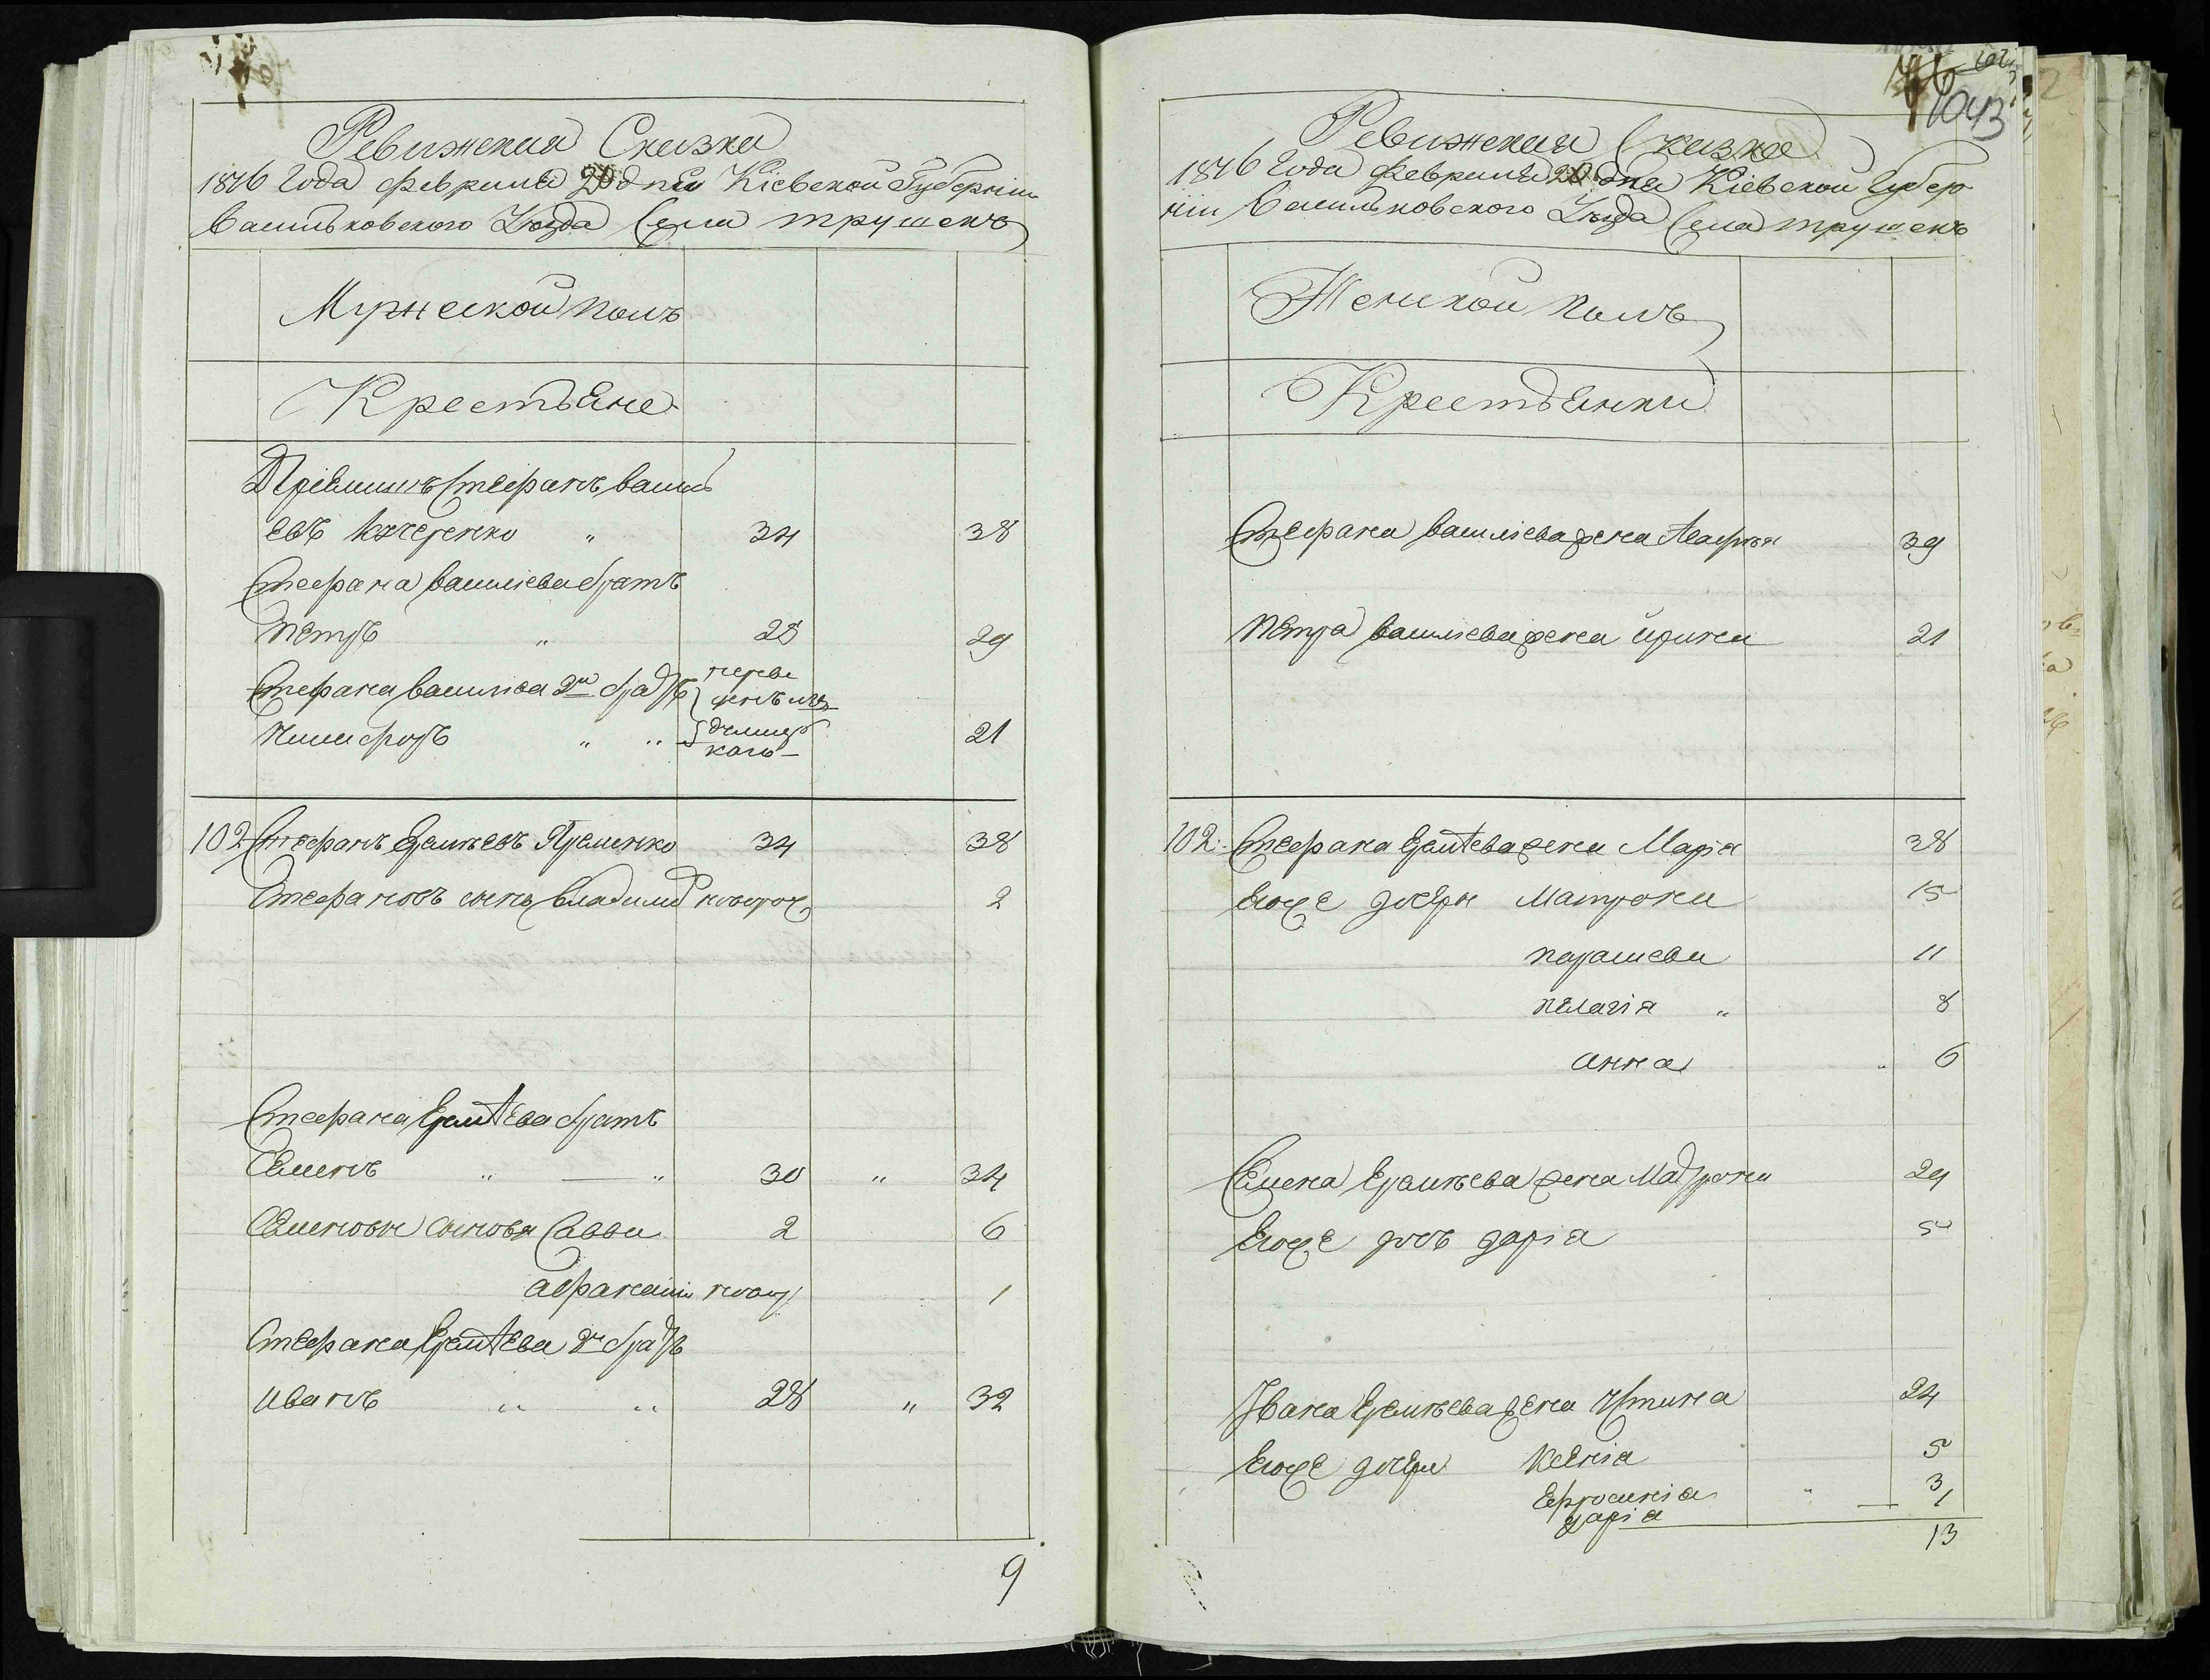 Ревижская Сказка
1816 Года февраля 20 дня Кіевской Губерніи
Васильковского Уезда Села трушекъ
Мужеской полъ
Крестьяне
Стефанъ васил
евъ 34 38
Стефана василіева братъ
петръ " 25 29
Стефана василіва 2й братъ переве
денъ изъ
Никифоръ " " 21
102 Стефанъ Еремѣевъ Яременко 34 38
Стефановъ сынъ владимир новорож 2
Стефана Еремѣева братъ
Семенъ " — " 30 " 34
Семеновы сыновя Савва 2 6
афанасий новор 1
Стефана Еремѣева 2й братъ
иванъ " " 28 " 32
9
1043
Ревижская Сказка
1816 Года февраля 20 дня Кіевской Губер
ніи Васильковского Уезда Села трушекъ
Женской полъ
Крестьянки
Стефана василіева жена Агафия 39
петра василіева жена ирина 21
102 Стефана Еремѣева жена Марія 38
Егоже дочери Матрона 15
парасева 11
пелагія " 8
анна " 6
Семена Еремѣева жена Матрона 29
Егоже дочь дарія 5
Івана Еремѣева жена Устина 24
Егоже дочери Ксенія 5
Ефросинія " — 3
дарія 1
13